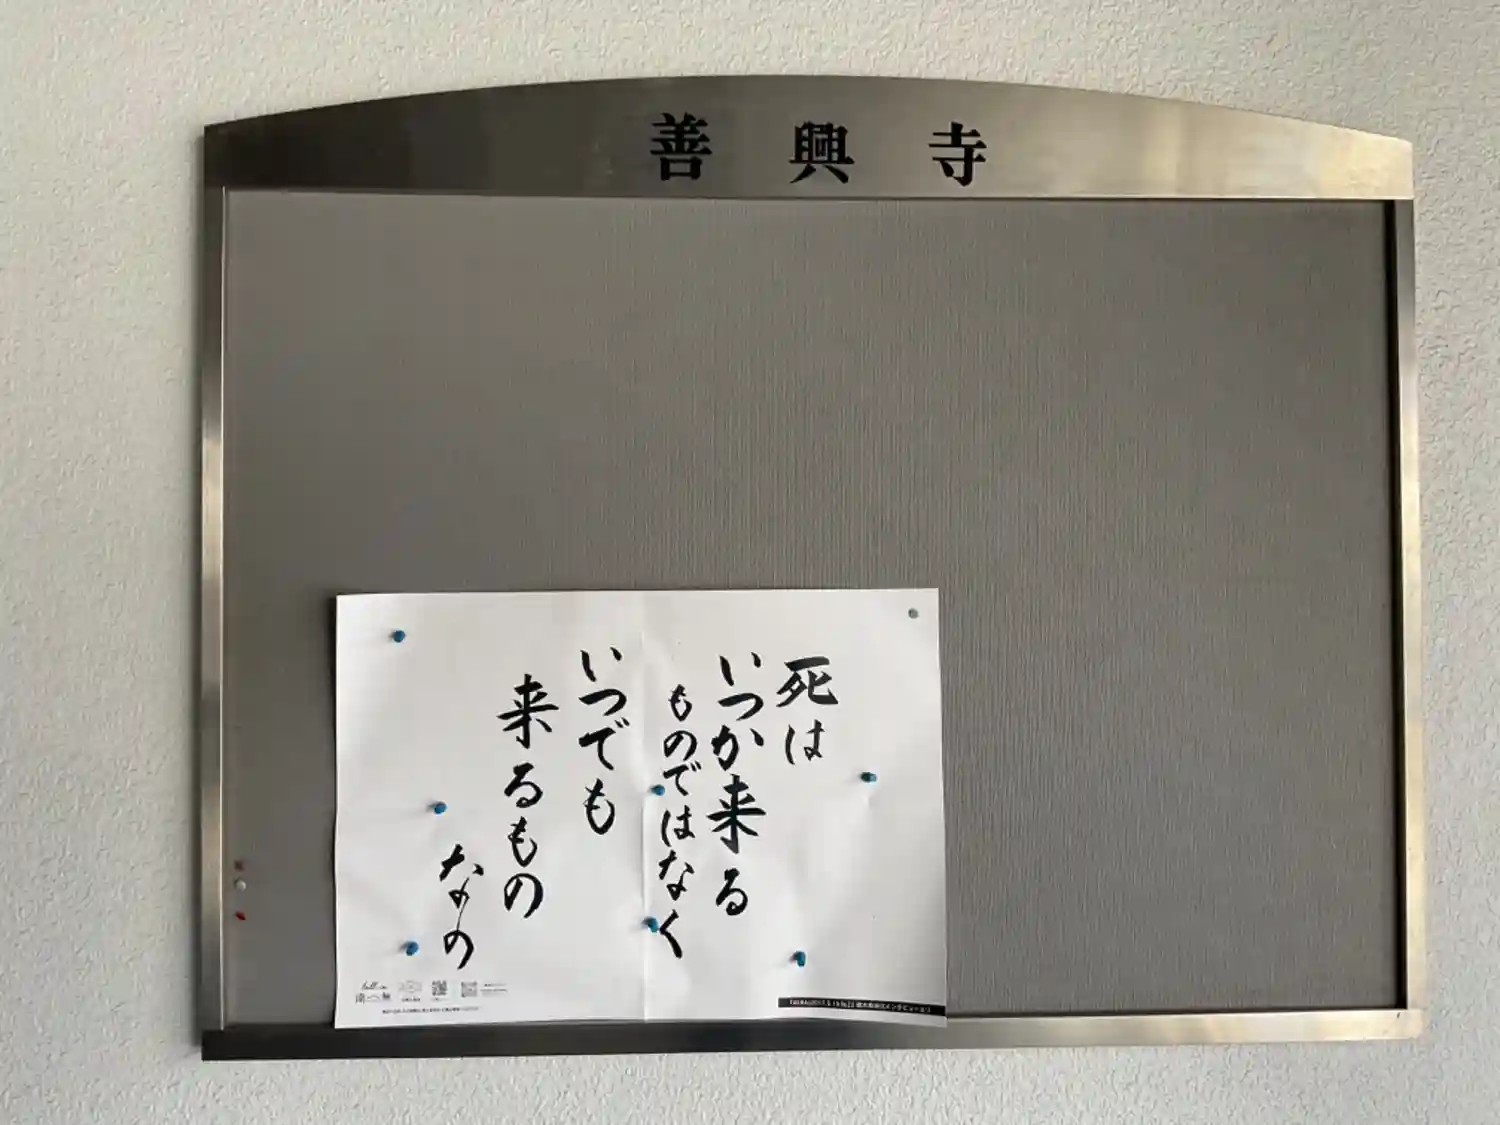 善興寺
死は
いつか来る
ものではなく
いつでも
来るもの
なの